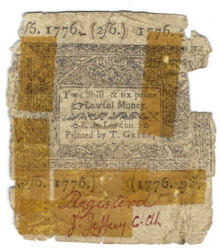 /5. 1776. (2/6.) 1776.
Two Shill. & six pence
Lawful Money.
N. London
Printed by T. GREEN.
/6. 1776.) (1776.
Registered
J. Jeffery